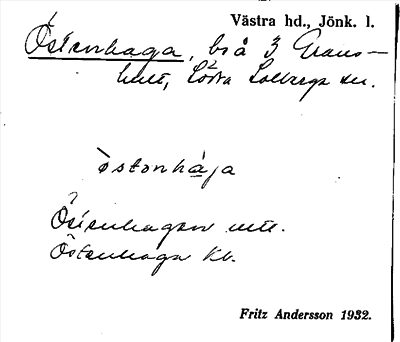 Västra hd., Jönk. l.
Östenhaga, bså 3 Grans-
hult, Södra Solberga sn.
òstonhàja
Östenhagen
Östenhaga Kb.
Fritz Andersson 1932.